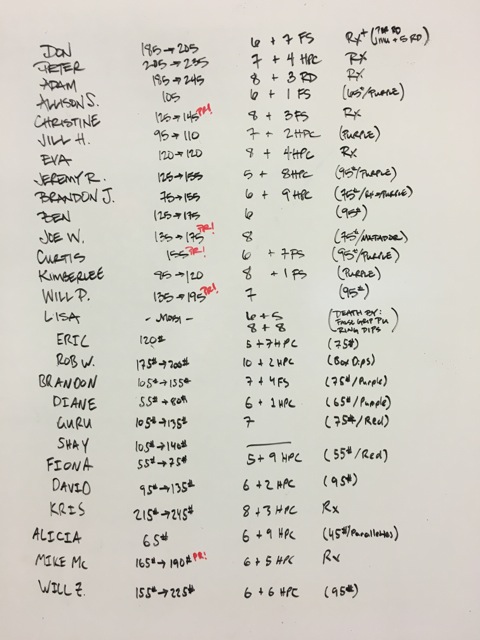 DON 185→205 6 + 7 FS Rx+
PETER 205→235 7 + 4 HPC Rx
ADAM 185→245 8 + 3 RD Rx
ALLISON S. 105 6 + 1 FS (65#/PURPLE)
CHRISTINE 125→145 PR! 8 + 3 FS Rx
JILL H. 95→110 7 + 2 HPC (PURPLE)
EVA 120→120 8 + 4 HPC Rx
JEREMY R. 125→155 5 + 8 HPC (95#/PURPLE)
BRANDON J. 75→155 6 + 9 HPC
ZEN 125→175 6 (95#)
JOE W. 135→175 PR! 8 (75#/MATADOR)
CURTIS 155 PR! 6 + 7 FS (95#/PURPLE)
KIMBERLEE 85→120 8 + 1 FS (PURPLE)
WILL P. 135→195 PR! 7 (95#)
LISA 6 + 5 8 + 8 (DEATH BY: FALSE GRIP PU RING DIPS)
ERIC 120# 5 + 7 HPC (75#)
ROB W. 175#→200# 10 + 2 HPC (Box Dips)
BRANDON 105#→135# 7 + 4 FS (75#/Purple)
DIANE 55#→80# 6 + 2 HPC (65#/Purple)
GURU 105#→135# 7 (75#/Red)
SHAY 105#→140#
FIONA 55#→75# 5 + 9 HPC (55#/Red)
DAVID 95#→135# 6 + 2 HPC (95#)
KRIS 215#→245# 8 + 3 HPC Rx
ALICIA 65# 6 + 9 HPC (45#/Parallettes)
MIKE Mc 165#→190# PR! 6 + 5 HPC Rx
WILL Z. 155#→225# 6 + 6 HPC (95#)